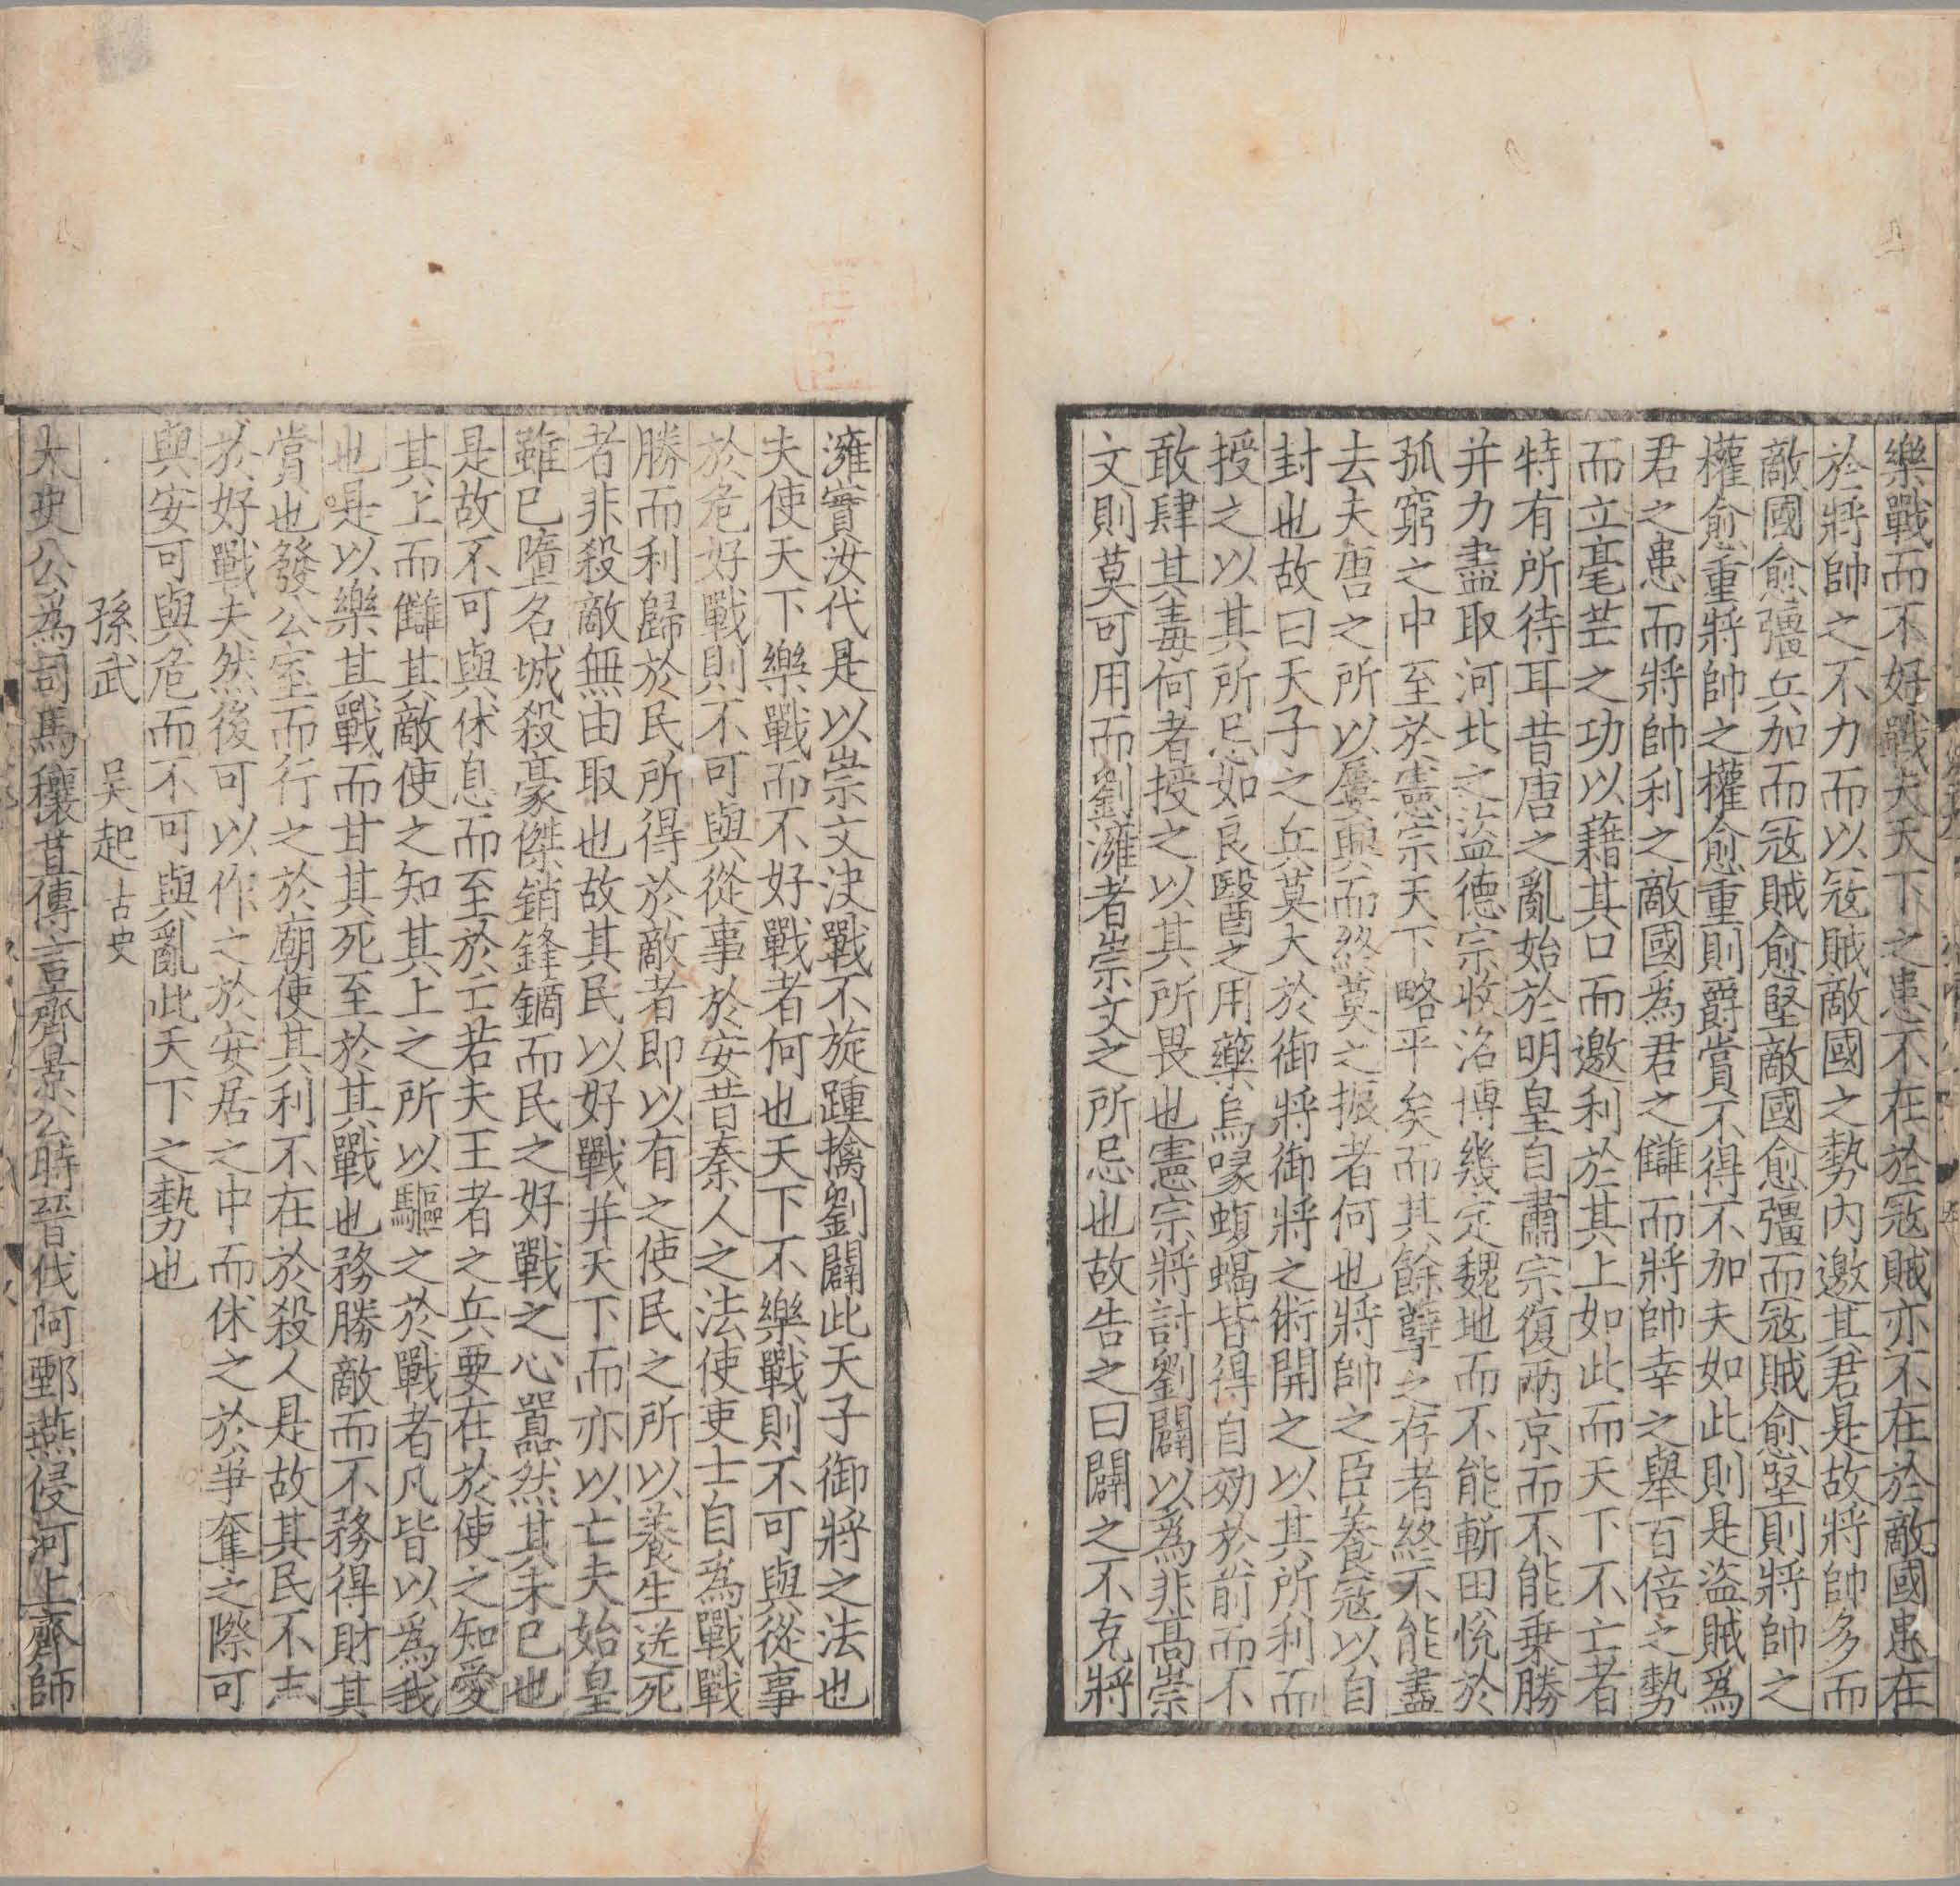 樂戰而不好戰夫天下之患不在於寇賊亦不在於敵國患在
於將帥之不力而以寇賊敵國之勢內邀其君是故將帥多而
敵國愈彊兵加而寇賊愈堅敵國愈彊而寇賊愈堅則將帥之
權愈重將帥之權愈重則爵賞不得不加夫如此則是盜賊爲
君之患而將帥利之敵國爲君之讎而將帥幸之舉百倍之勢
而立毫芒之功以藉其口而邀利於其上如此而天下不亡者
特有所待耳昔唐之亂始於明皇自肅宗復兩京而不能乗勝
并力盡取河北之盜德宗收洺博幾定魏地而不能斬田悅於
孤窮之中至於憲宗天下略平矣而其餘孽之存者終不能盡
去夫唐之所以屢興而終莫之振者何也將帥之臣養寇以自
封也故曰天子之兵莫大於御將御將之術開之以其所利而
授之以其所忌如良醫之用藥烏喙蝮蝎皆得自効於前而不
敢肆其毒何者授之以其所畏也憲宗將討劉闢以爲非高崇
文則莫可用而劉澭者崇文之所忌也故告之曰闢之不克將
澭實汝代是以崇文決戰不旋踵擒劉闢此天子御將之法也
夫使天下樂戰而不好戰者何也天下不樂戰則不可與從事
於危好戰則不可與從事於安昔秦人之法使吏士自爲戰戰
勝而利歸於民所得於敵者即以有之使民之所以養生送死
者非殺敵無由取也故其民以好戰并天下而亦以亡夫始皇
雖已墮名城殺豪傑銷鋒鏑而民之好戰之心囂然其未已也
是故不可與休息而至於亡若夫王者之兵要在於使之知愛
其上而讎其敵使之知其上之所以驅之於戰者凡皆以爲我
也是以樂其戰而甘其死至於其戰也務勝敵而不務得財其
賞也發公室而行之於廟使其利不在於殺人是故其民不志
於好戰夫然後可以作之於安居之中而休之於爭奪之際可
與安可與危而不可與亂此天下之勢也
孫武 吴起 古史
太史公爲司馬穰苴傳言齊景公時晉伐阿鄄燕侵河上齊師